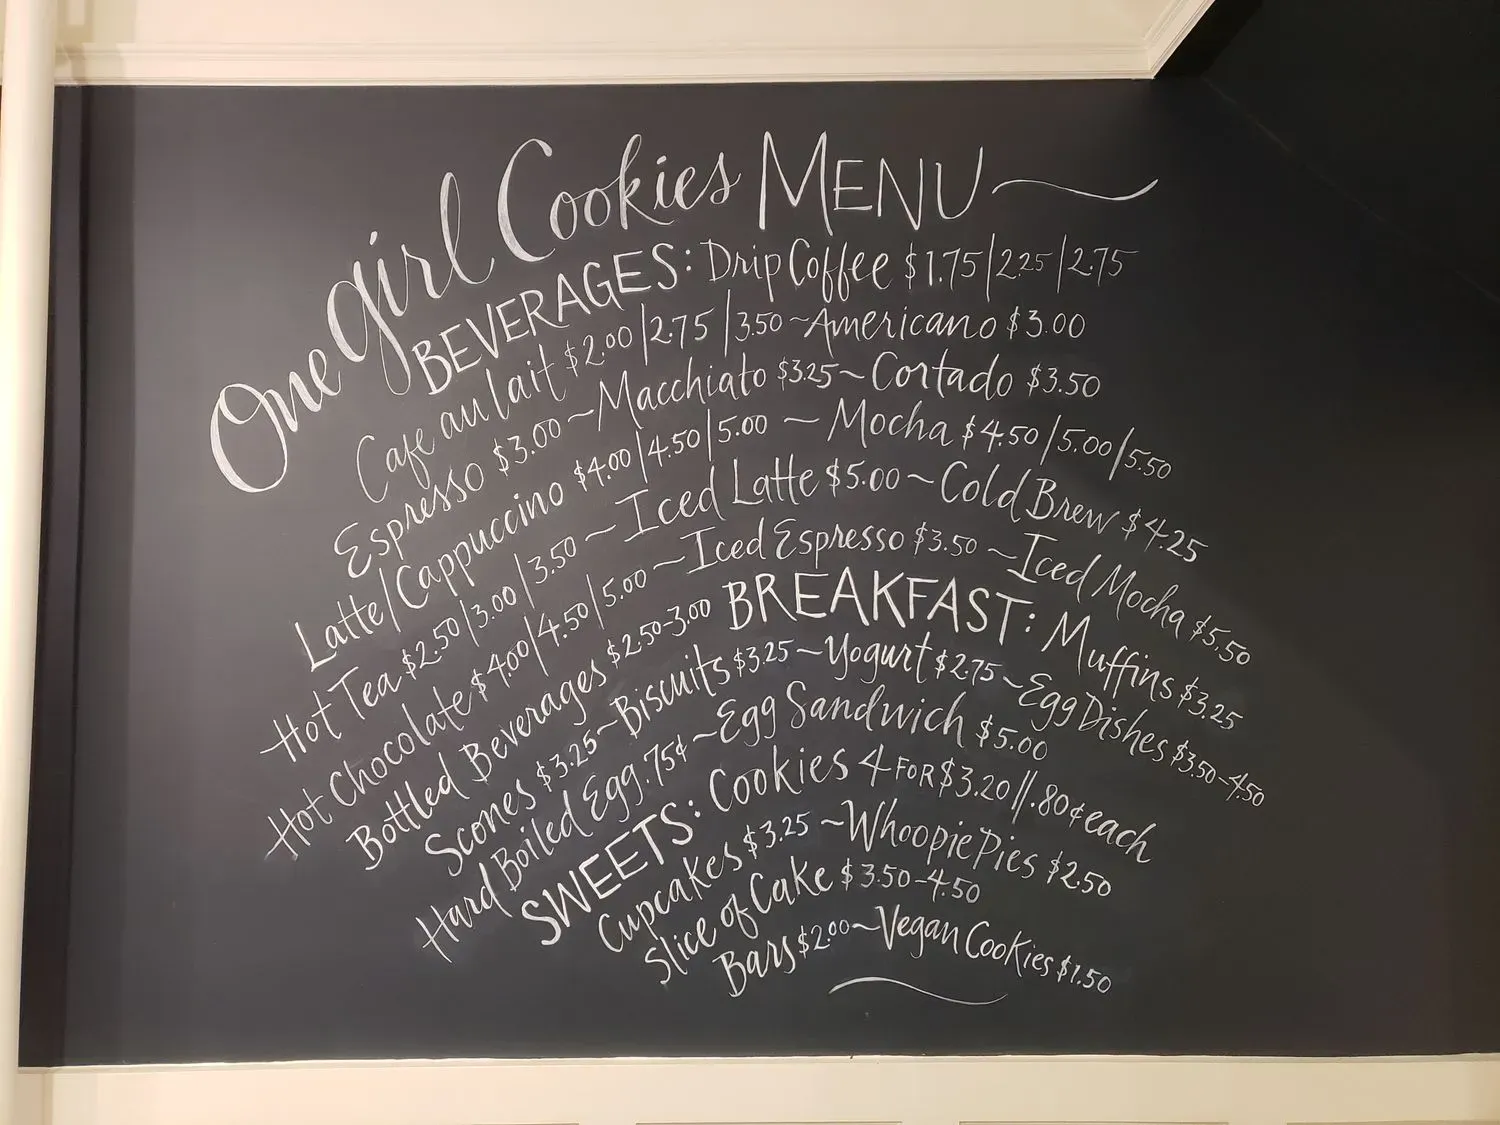 One girl Cookies MENU
BEVERAGES: Drip Coffee $1.75|2.25|2.75
Cafe au lait $2.00|2.75|3.50 ~ Americano $3.00
Espresso $3.00 ~ Macchiato $3.25 ~ Cortado $3.50
Latte/Cappuccino $4.00|4.50|5.00 ~ Mocha $4.50|5.00|5.50
Hot Tea $2.50|3.00|3.50 ~ Iced Latte $5.00 ~ Cold Brew $4.25
Hot Chocolate $4.00|4.50|5.00 ~ Iced Espresso $3.50 ~ Iced Mocha $5.50
Bottled Beverages $2.50-3.00 BREAKFAST: Muffins $3.25
Scones $3.25 ~ Biscuits $3.25 ~ Yogurt $2.75 ~ Egg Dishes $3.50-4.50
Hard Boiled Egg .75¢ ~ Egg Sandwich $5.00
SWEETS: Cookies 4 FOR $3.20//.80¢ each
Cupcakes $3.25 ~ Whoopie Pies $2.50
Slice of Cake $3.50-4.50
Bars $2.00 ~ Vegan Cookies $1.50